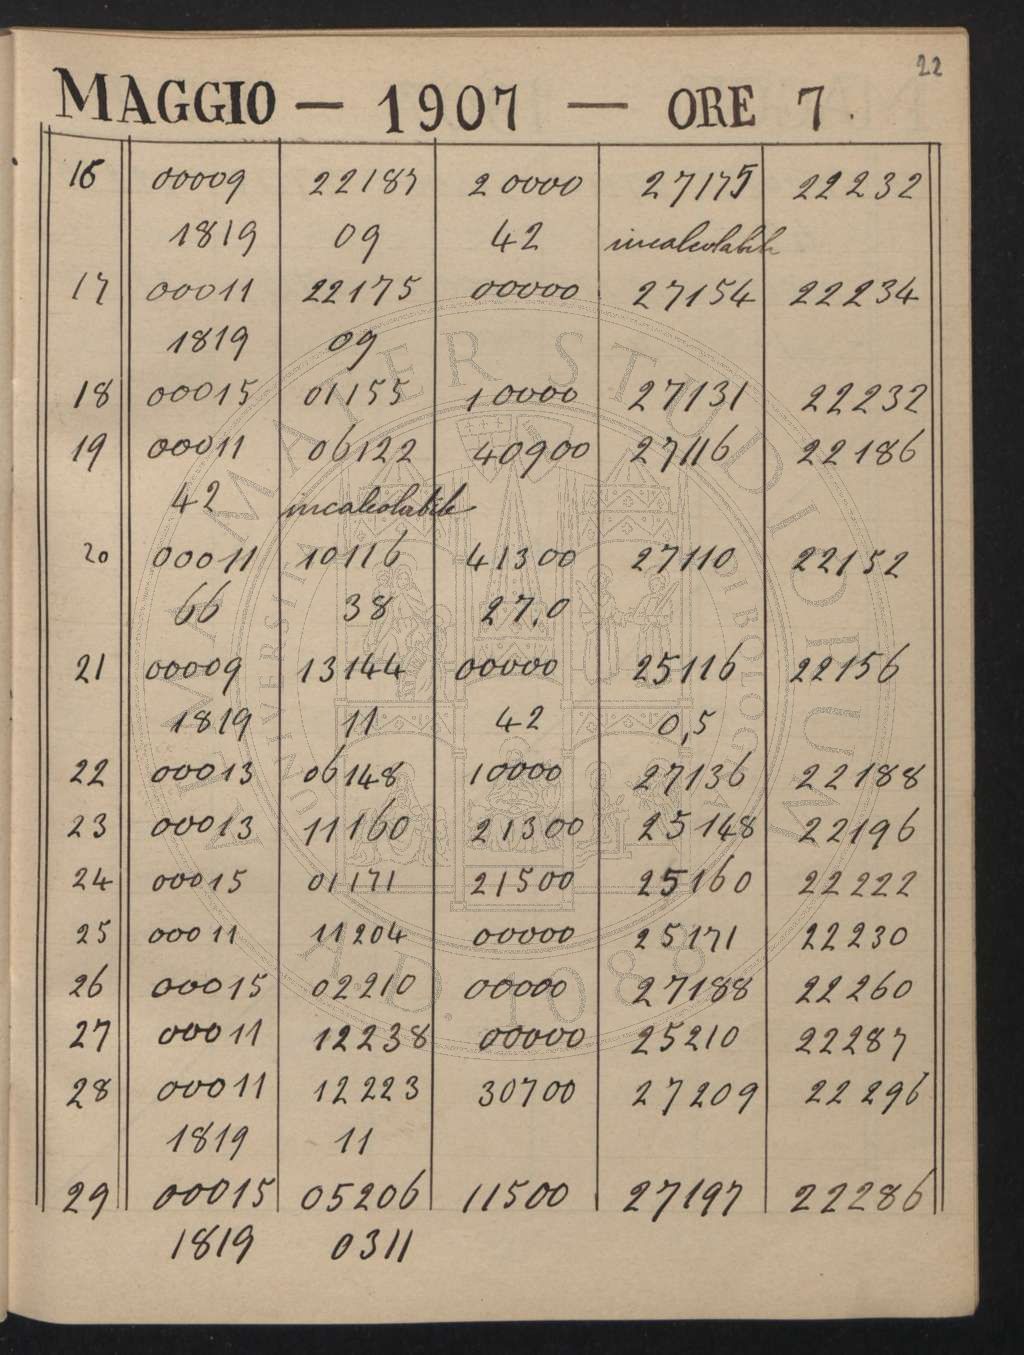 22
MAGGIO — 1907 — ORE 7.
16 00009 22187 20000 27175 22232
1819 09 42 incalcolabile
17 00011 22175 00000 27154 22234
1819 09
18 00015 01155 10000 27131 22232
19 00011 06122 40900 27116 22186
42 incalcolabile
20 00011 10116 41300 27110 22152
66 38 27,0
21 00009 13144 00000 25116 22156
1819 11 42 0,5
22 00013 06148 10000 27136 22188
23 00013 11160 21300 25148 22196
24 00015 01171 21500 25160 22222
25 00011 11204 00000 25171 22230
26 00015 02210 00000 27188 22260
27 00011 12238 00000 25210 22287
28 00011 12223 30700 27209 22296
1819 11
29 00015 05206 11500 27197 22286
1819 0311
ALMA MATER STUDIORUM
A.D. 1088